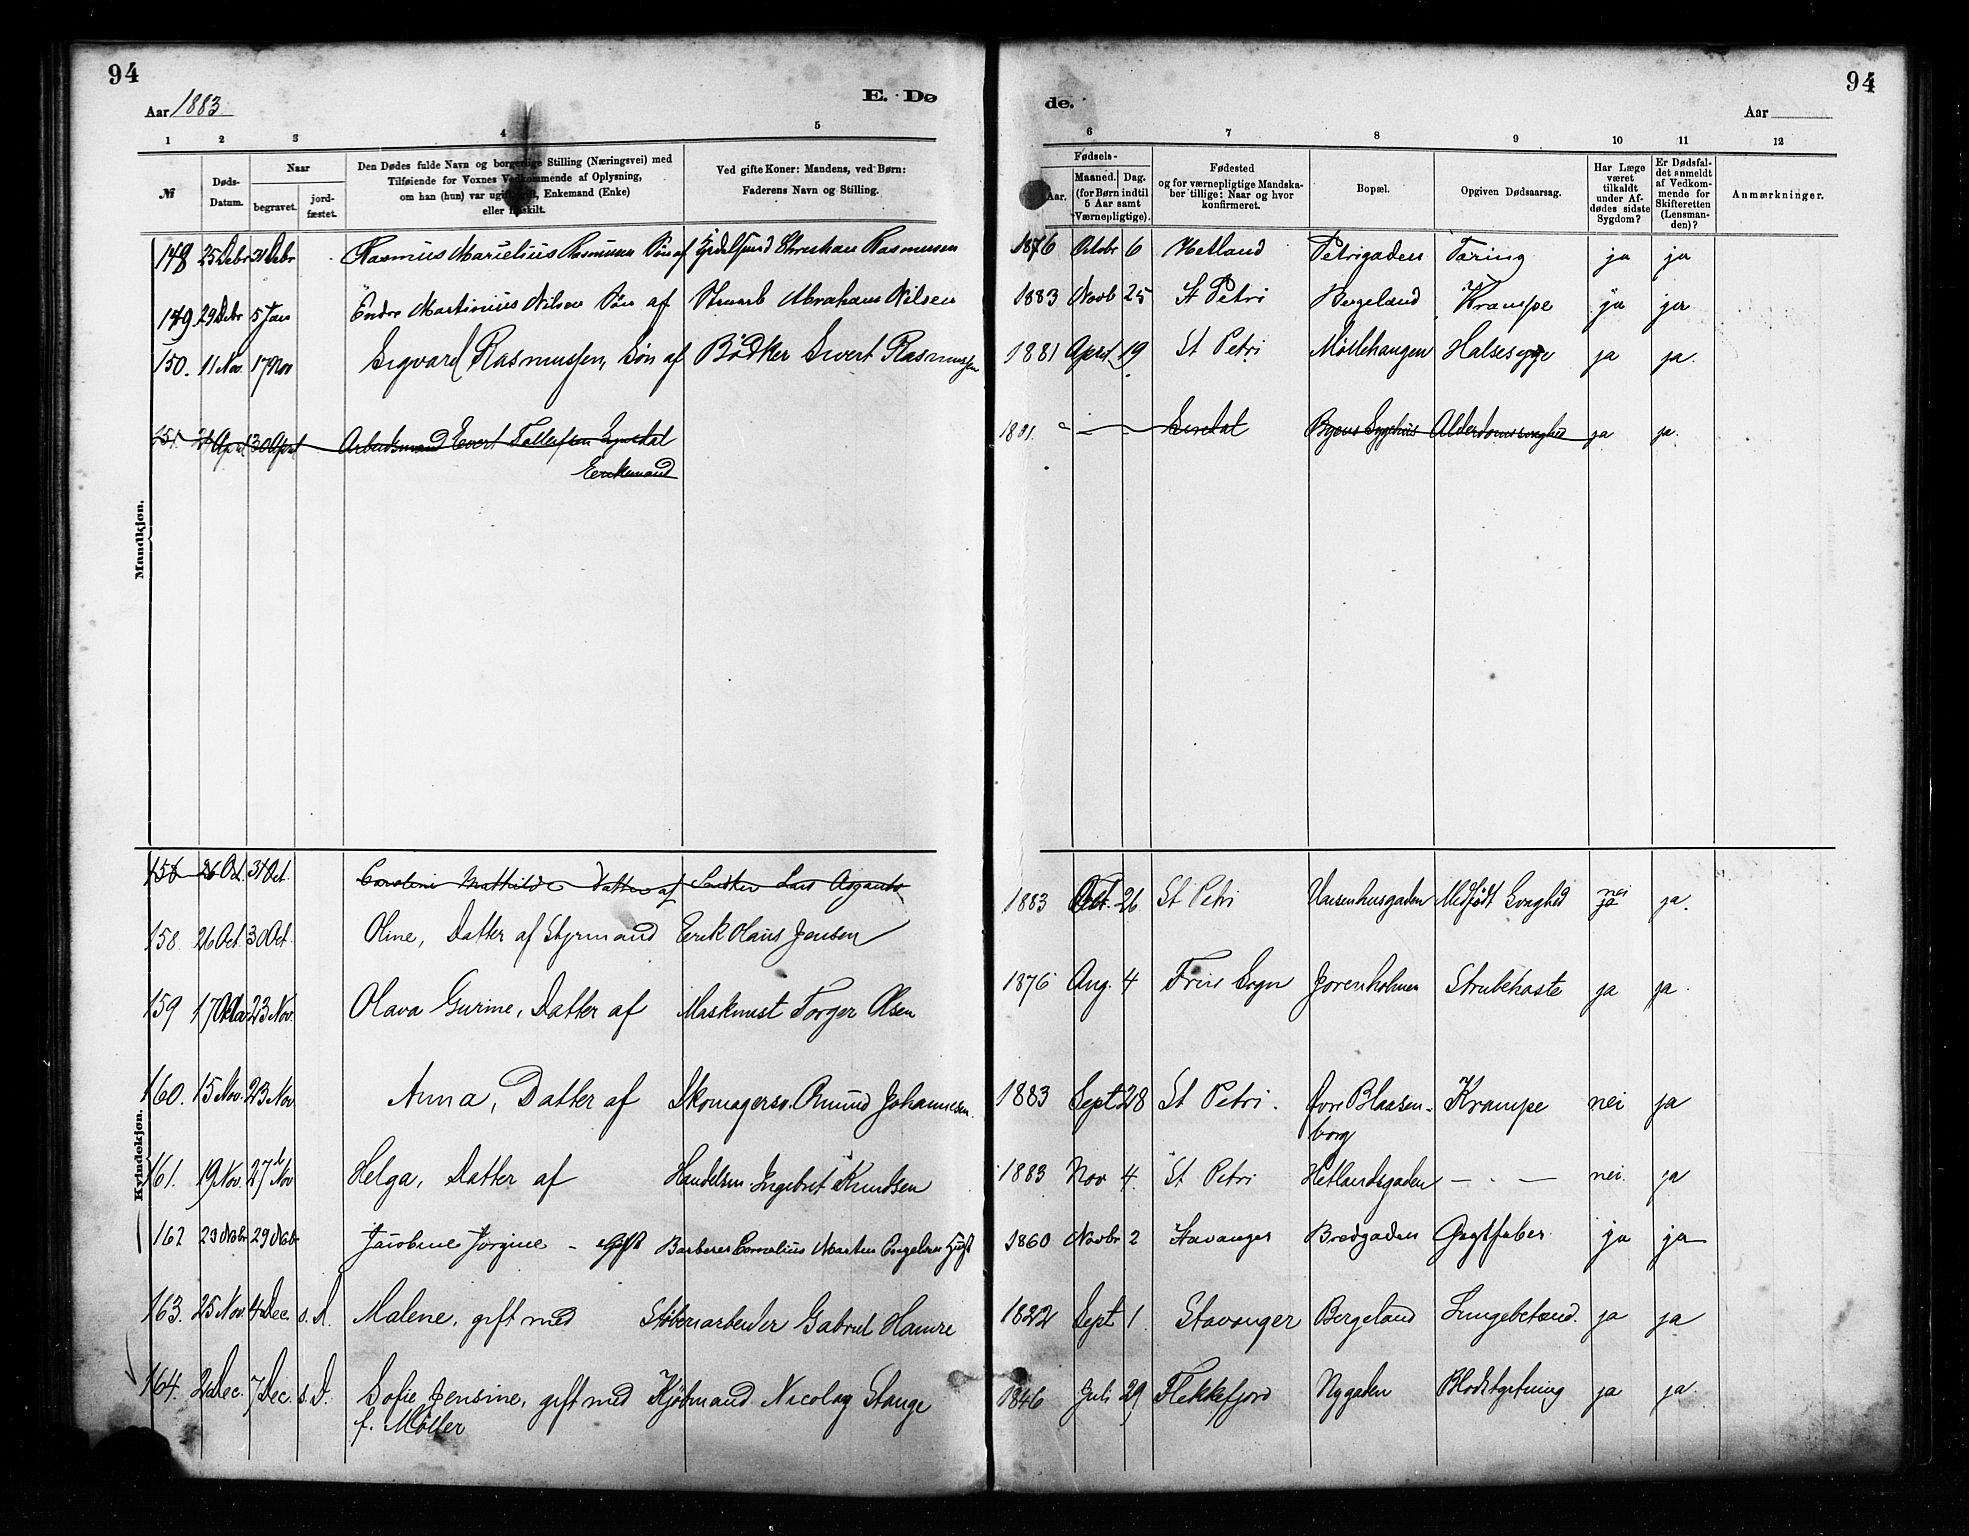 94
94
Aar 1883
E. Dø
de.
Aar
1 2 3 4 5 6 7 8 9 10 11 12
№
Døds-
Datum.
Naar
begravet.
jord-
fæstet.
Den Dødes fulde Navn og borgerlige Stilling (Næringsvei) med
Tilføiende for Voxnes Vedkommende af Oplysning,
om han (hun) var ugift, gift, Enkemand (Enke)
eller fraskilt.
Ved gifte Koner: Mandens, ved Børn:
Faderens Navn og Stilling.
Fødsels-
Aar.
Maaned. Dag.
(for Børn indtil
5 Aar samt
Værnepligtige).
Fødested
og for værnepligtige Mandska-
ber tillige: Naar og hvor
konfirmeret.
Bopæl.
Opgiven Dødsaarsag.
Har Læge
været
tilkaldt
under Af-
dødes sidste
Sygdom?
Er Dødsfal-
det anmeldt
af Vedkom-
mende for
Skifteretten
(Lensman-
den)?
Anmærkninger.
Mandkjøn.
148 25 Debr 31 Debr Rasmus Marielius Rasmussen Søn af Christian Rasmussen 1876 Octobr 6 Hetland Petrigaden Tæring ja ja
149 29 Debr 5 Jan Endre Martinius Nilsen Søn af Abraham Nilsen 1883 Novb 25 St Petri Bergeland Krampe ja ja
150. 11 Nov. 17 Nov Sigvard Rasmussen, Søn af Bødker Sivert Rasmussen 1881 April 19 St Petri Møllehaugen Halsesyge ja ja.
151 21 April 30 April Arbeidsmand Evert Tollefsen 1801 - - Byens Sygehus Alderdomssvaghed ja ja.
Enkemand
Kvindekjøn.
26 Oct. 31 Oct. Caroline Mathilde Datter af Lars
1883 Oct. 26 St Petri Vaisenhusgaden Medfødt Svaghed nei ja ja.
158. 26 Oct. 30 Oct. Oline, Datter af Styrmand Erik Olaus Jensen
1876 Aug. 4 Frue Sogn Jorenholmen Strubehoste ja ja.
159 17 23 Nov. Olava Gurine, Datter af Maskinist Torger Olsen
160. 15 Nov. 23 Nov Anna, Datter af Skomagersv. Omund Johannesen. 1883 Sept. 28 St Petri. Øvre Blaasen-
borg Krampe nei ja
161. 19 Nov. 27 Nov Helga, Datter af Handelsm. Ingebret Knudsen 1883 Nov 4. St Petri Hetlandsgaden - . - nei. ja
162 23 Nobr 29 Nobr Jacobine Jørgine - Gift Barberer Cornelius Marten Engelsen Gift 1860 Novbr 2 Stavanger Bredgaden Gigtfeber. ja ja
163. 25 Nov 4 Dec. s. D. Malene, gift med Støberiarbeider Gabriel Hamre 1822 Sept 1. Stavanger Bergeland Lungebetænd. ja ja
164. 2 Dec. 7 Dec. s. D. Sofie Jensine, gift med Kjøbmand Nicolay Stange 1846 Juli 29 Flekkefjord Nygaden Blodstyrtning ja ja.
f. Møller